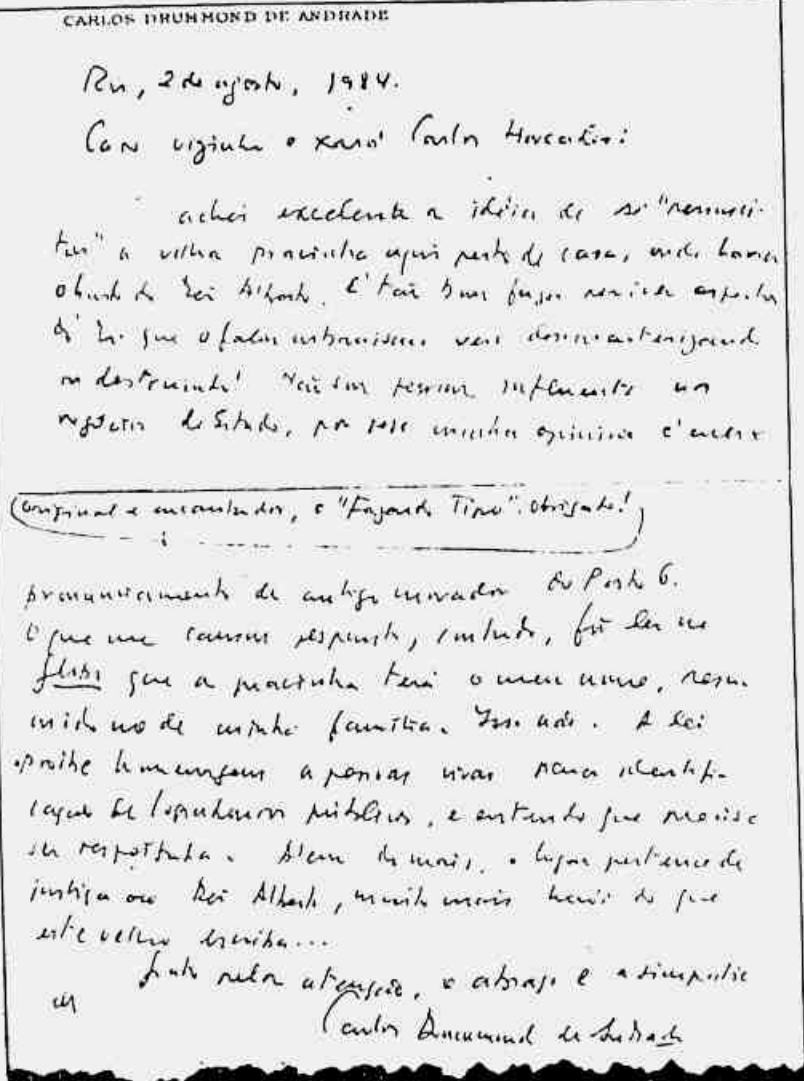 CARLOS DRUMMOND DE ANDRADE
Rio, 2 de agosto, 1984.
Caro vizinho e xará Carlos
achei excelente a idéia de se "ressusci-
tar" a velha pracinha aqui perto de casa, onde havia
o busto do Rei Alberto. É tão bom fazer reviver aspectos
do Rio que o falso urbanismo vem descaracterizando
ou destruindo! Não sou pessoa influente nos
negócios de Estado, por isso minha opinião é mero
original e encantador, o "Fazendo Tipo". Obrigado!
pronunciamento de antigo morador do Posto 6.
O que me causou espanto, contudo, foi ler no
Globo que a pracinha terá o meu nome, resu-
mido no de minha família. Isso não. A lei
proíbe homenagens a pessoas vivas para identifi-
cação de logradouros públicos, e entendo que precisa
ser respeitada. Além do mais, o lugar pertence de
justiça ao Rei Alberto, muito mais herói do que
este velho escriba...
Grato pela atenção, o abraço e a simpatia
Carlos Drummond de Andrade